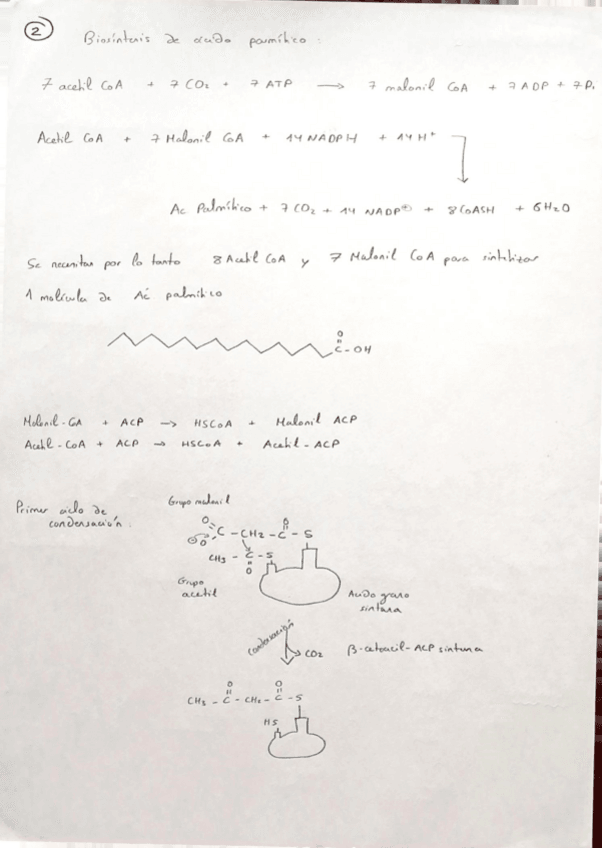 2
Biosíntesis de ácido palmítico :
7 acetil CoA + 7 CO2 + 7 ATP → 7 malonil CoA + 7 ADP + 7 Pi
Acetil CoA + 7 Malonil CoA + 14 NADPH + 14 H+
Ac Palmítico + 7 CO2 + 14 NADP+ + 8 CoASH + 6 H2O
Se necesitan por lo tanto 8 Acetil CoA y 7 Malonil CoA para sintetizar
1 molécula de Ác palmítico
O
C - OH
Malonil-CoA + ACP → HSCoA + Malonil ACP
Acetil-CoA + ACP → HSCoA + Acetil-ACP
Primer ciclo de
condensación :
Grupo malonil
O O
C - CH2 - C - S
O
CH3 - C - S
O
Grupo
acetil
Ácido graso
sintasa
Condensación
CO2
β-cetoacil-ACP sintasa
O O
CH3 - C - CH2 - C - S
HS